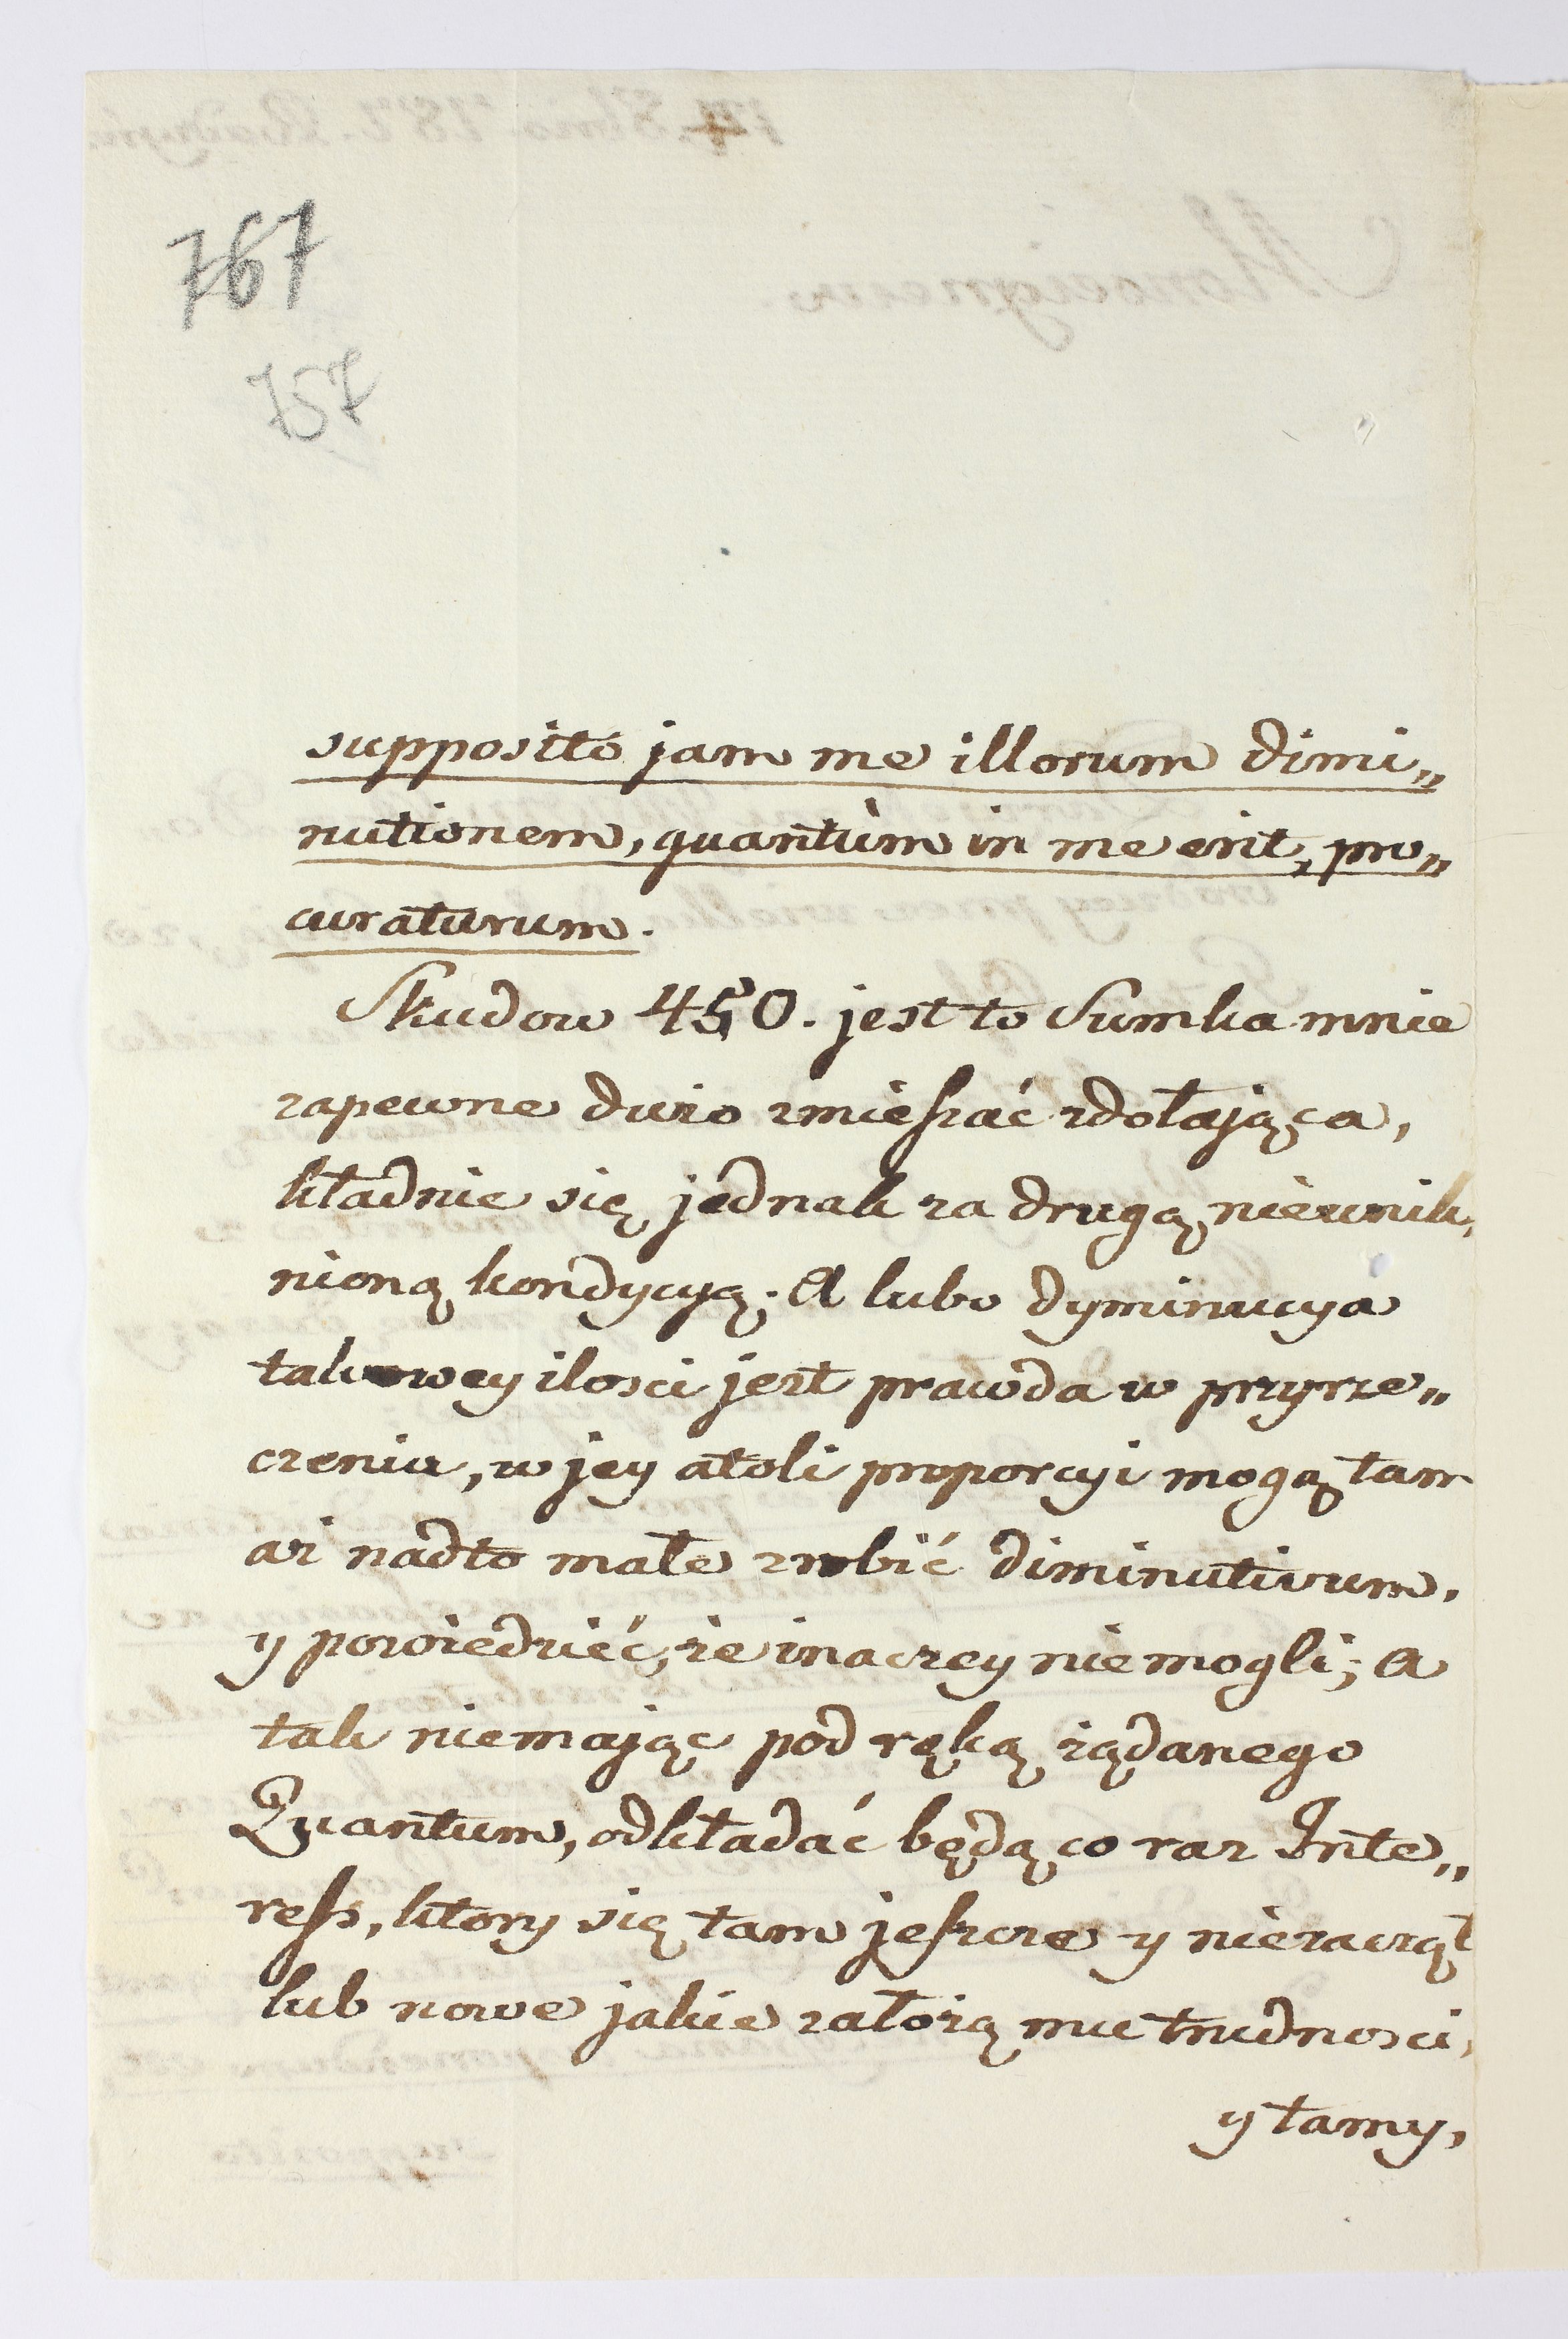 767
757
supposito jam me illorum dimi„
nutionem, quantùm in me erit, pro„
curaturum.
Skudow 450. jest to Sumka mnie
zapewne dużo zmieszać zdołająca,
kładnie się jednak za drugą nieunik„
nioną kondycyą; A lubo dyminucya
takowey ilosci jest prawda w przyrze„
czeniu, w jey atoli proporcyi mogą tam
aż nadto małe zrobić diminutivum,
y powiedzieć, że inaczey niemogli; a
tak niemając pod ręką żądanego
Quantum, odkładać będą co raz Inte„
ress, ktory się tam jeszcze y niezaczął
lub nowe jakie założą mu trudnosci,
y tamy,